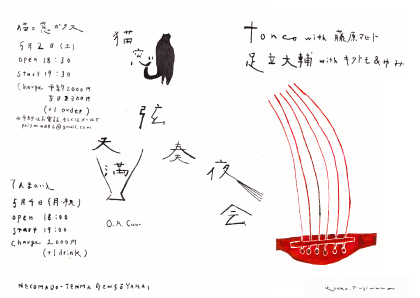 猫と窓ガラス
5月2日(土)
open 18:30
start 19:30
charge 予約2000円
当日2300円
(+1 order)
猫
窓
弦
天
満
奏
夜
会
tonco with 藤原マヒト
足立大輔 with キクトモ&ゆみ
てんまのいえ
5月4日(月・祝)
open 18:00
start 19:00
charge 2000円
(+1 drink)
NECOMADO-TEMMA GENSOYAKAI